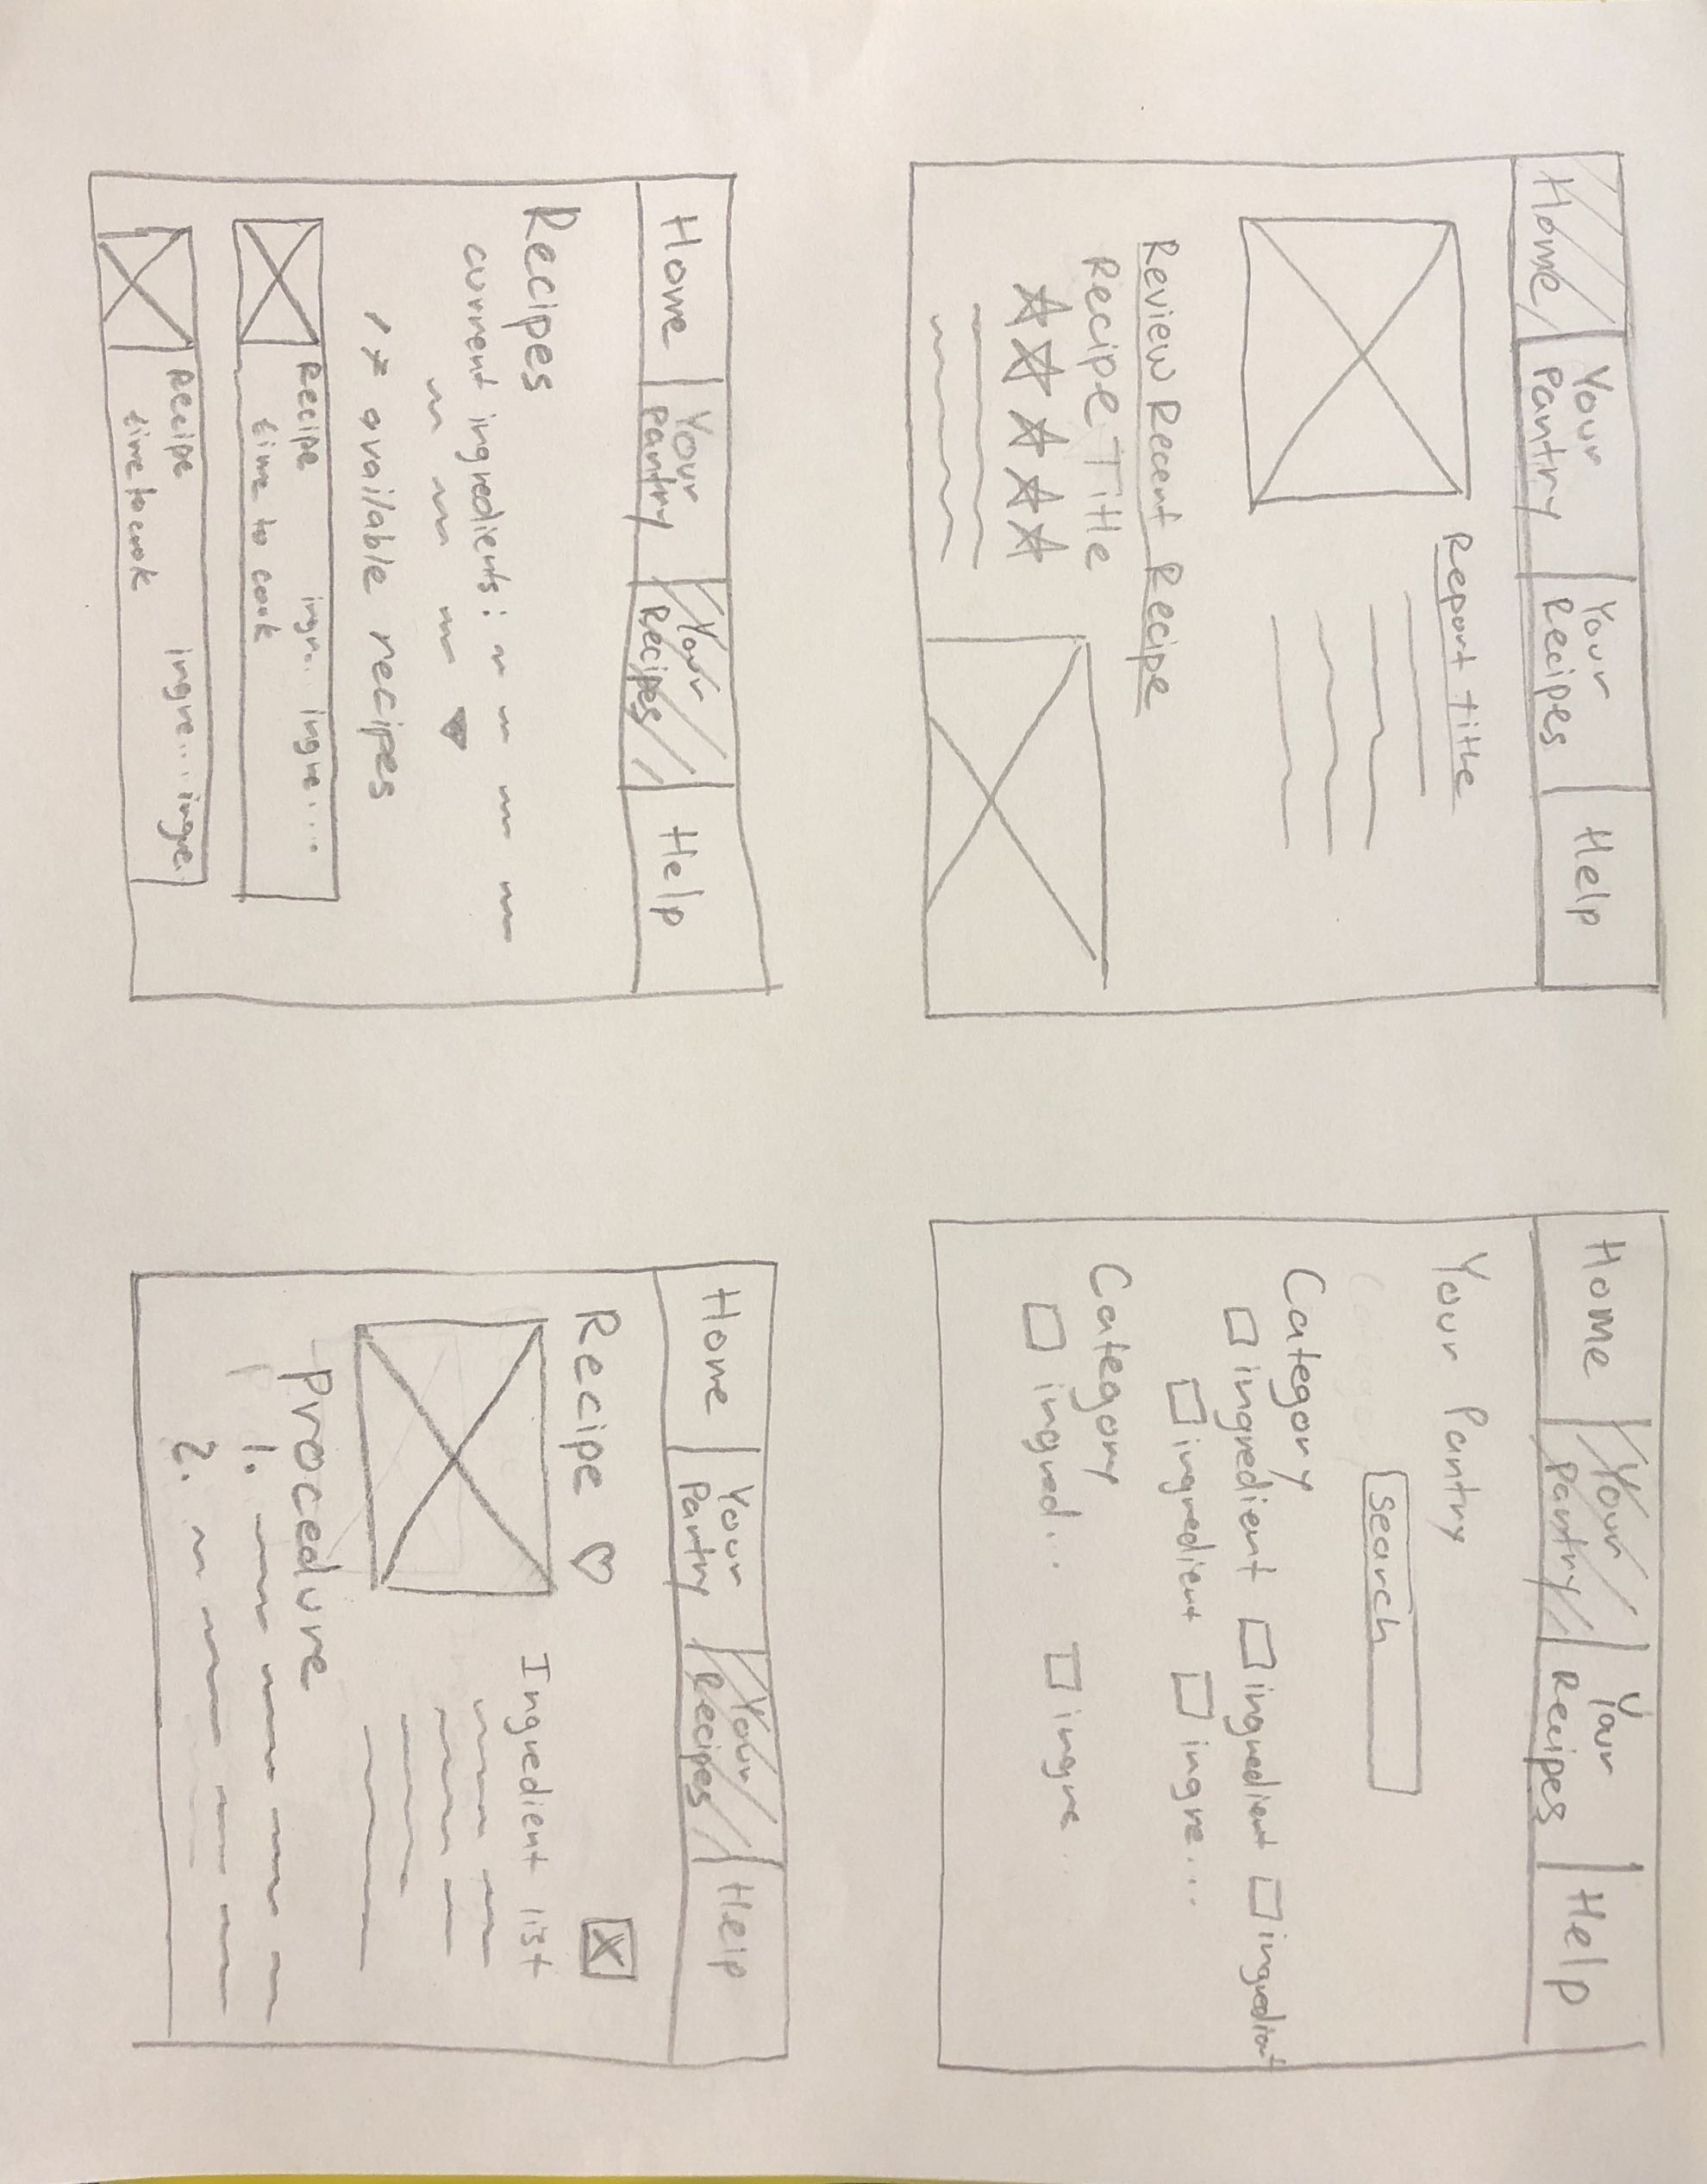 Home
Your
Pantry
Your
Recipes
Help
Report title
Review Recent Recipe
Recipe Title
Home
Your
Pantry
Your
Recipes
Help
Your Pantry
search
Category
ingredient ingredient ingredient
ingredient ingre...
Category
ingred... ingre...
Home
Your
Pantry
Your
Recipes
Help
Recipes
current ingredients:
available recipes
Recipe ingr.. ingre....
time to cook
Recipe ingre... ingre.
time to cook
Home
Your
Pantry
Your
Recipes
Help
Recipe
Ingredient list
Procedure
1.
2.